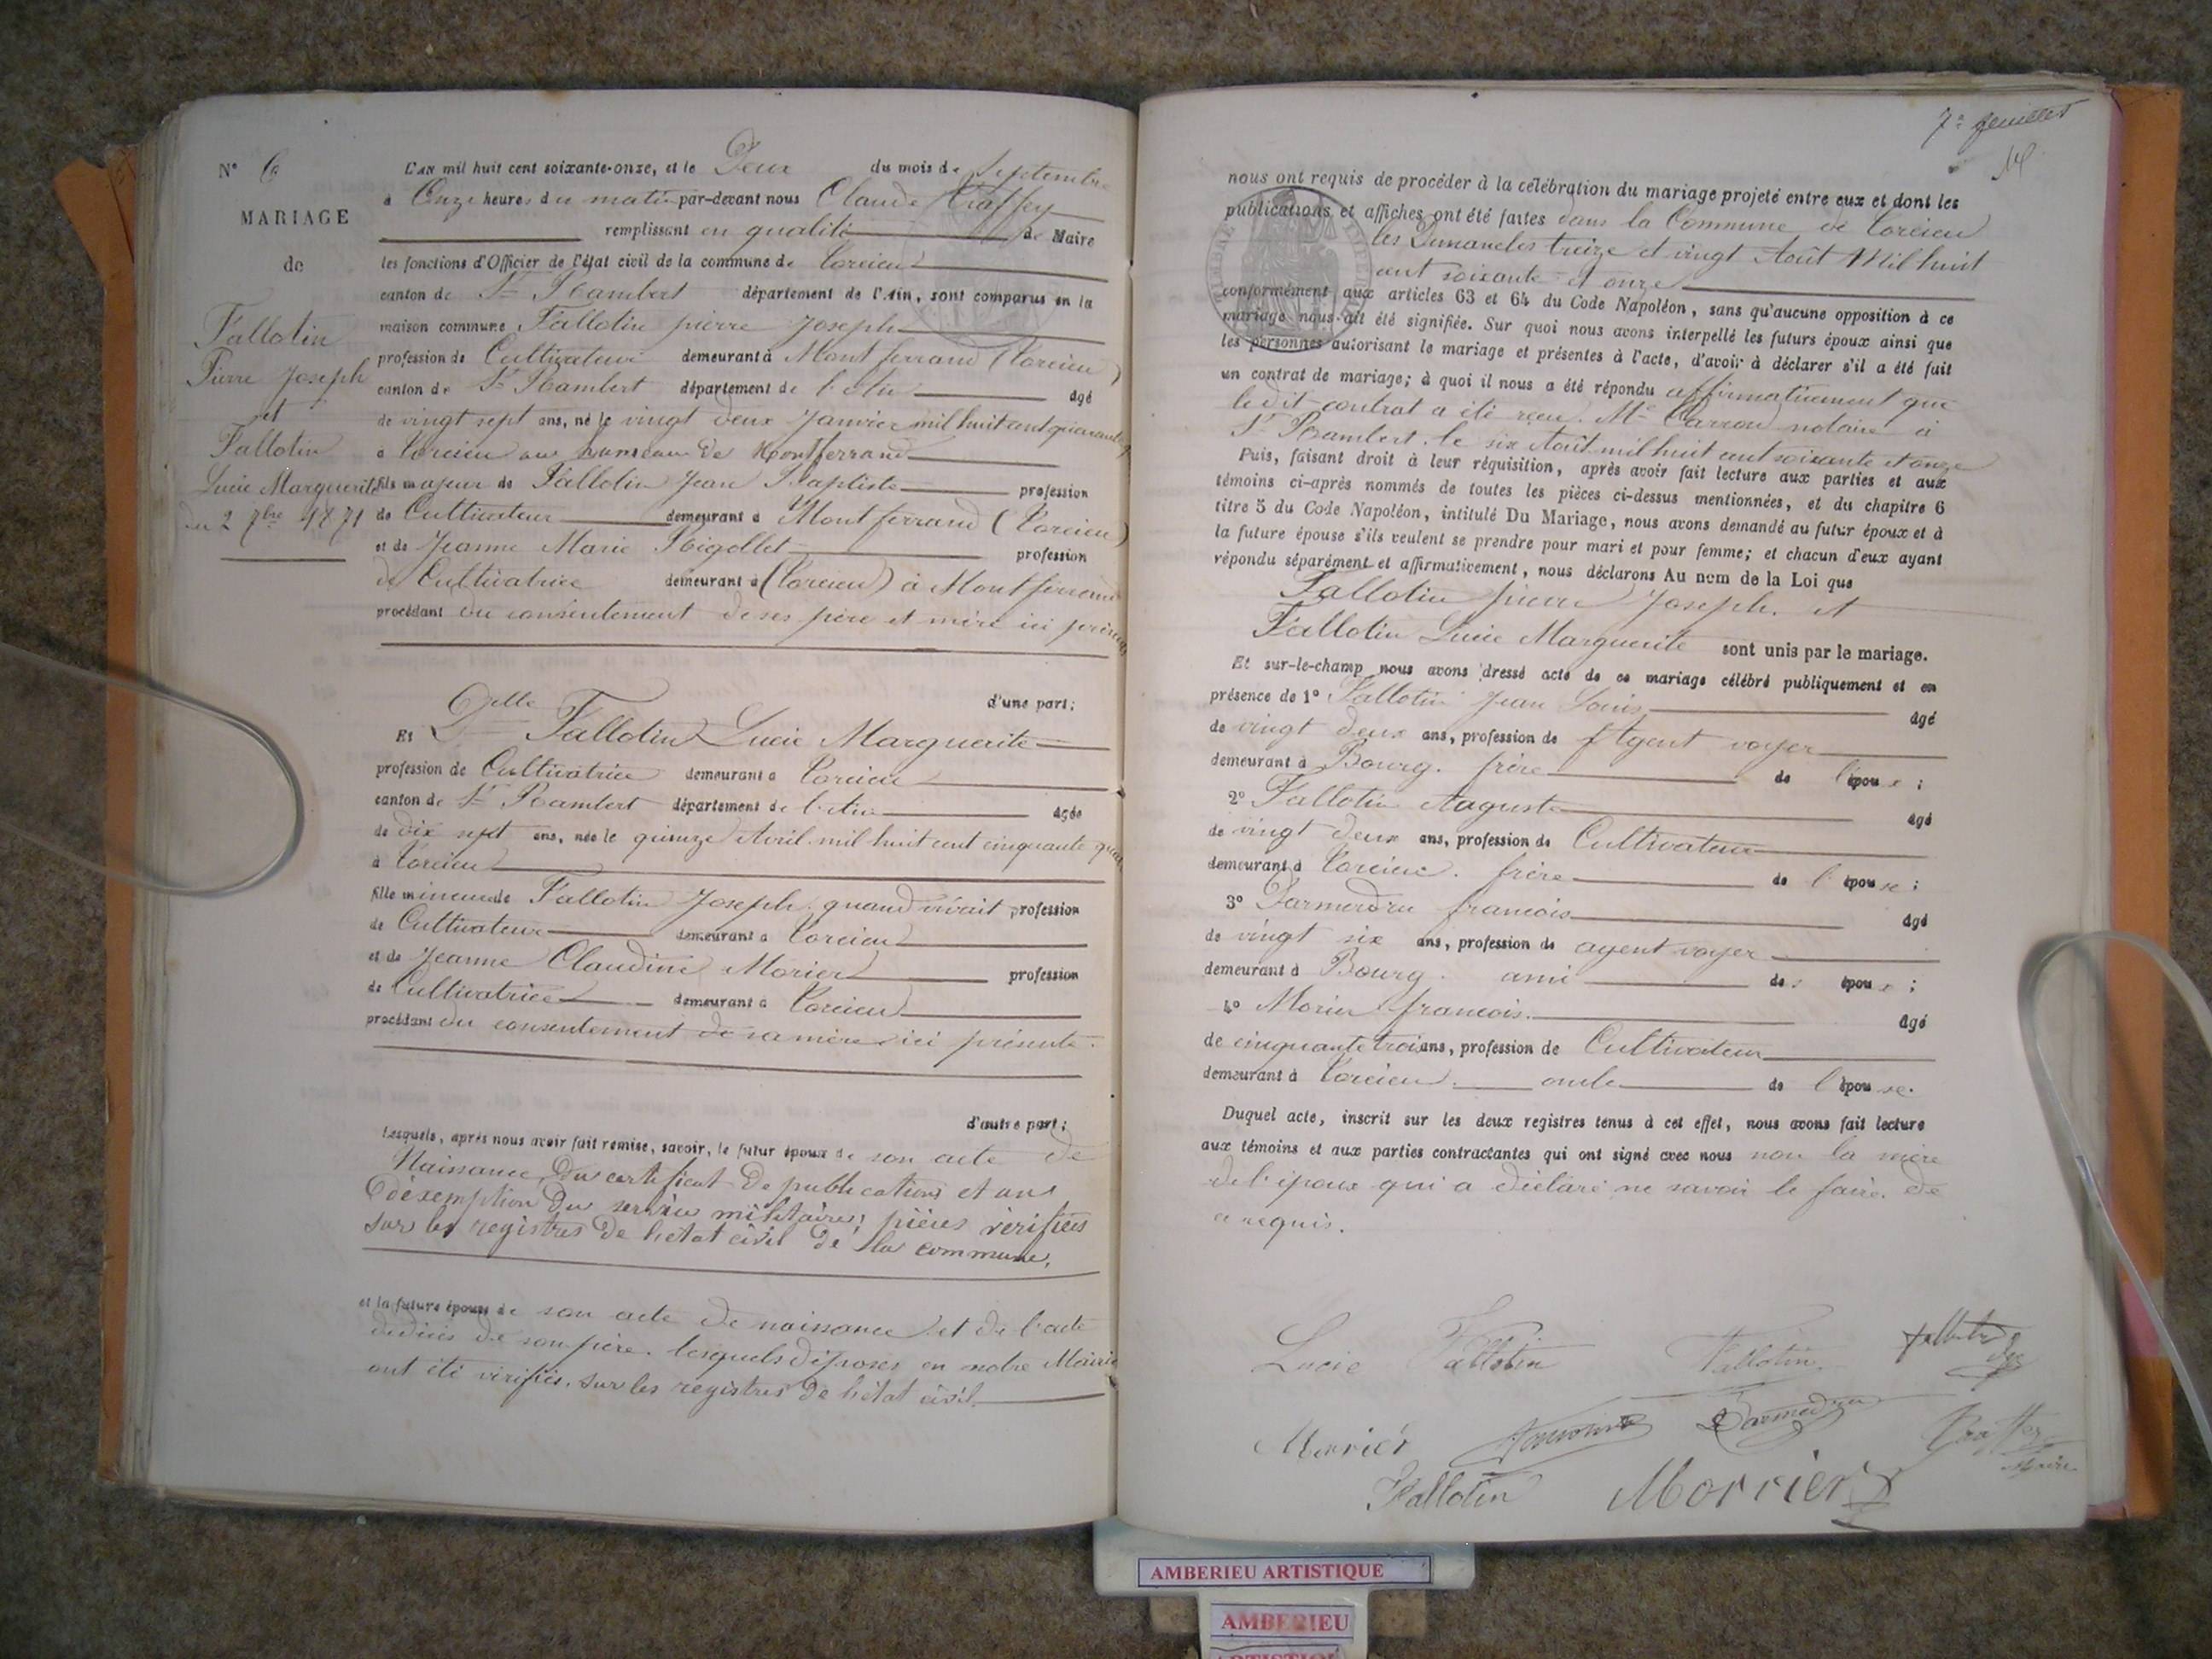 N° 6
MARIAGE
de
Fallotin
Pierre Joseph
et
Fallotin
Lucie Marguerite
du 2 7bre 1871
L'AN mil huit cent soixante-onze, et le Deux du mois de Septembre
à Onze heures du matin par-devant nous Claude
remplissant en qualité de Maire
les fonctions d'Officier de l'état civil de la commune de Torcieu
canton de St Rambert département de l'Ain, sont comparus en la
maison commune Fallotin pierre Joseph
profession de Cultivateur demeurant à Montferrand (Torcieu)
canton de St Rambert département de l'Ain âgé
de vingt sept ans, né le vingt deux Janvier mil huit cent quarante
à Torcieu au hameau de Montferrand
fils majeur de Fallotin Jean Baptiste profession
de Cultivateur demeurant à Montferrand (Torcieu)
et de Jeanne Marie Rigollet profession
de Cultivatrice demeurant à (Torcieu) à Montferrand
procédant du consentement de ses père et mère ici présents
d'une part;
Et Delle Fallotin Lucie Marguerite
profession de Cultivatrice demeurant à Torcieu
canton de St Rambert département de l'Ain âgée
de dix sept ans, née le quinze Avril mil huit cent cinquante
à Torcieu
fille mineure de Fallotin Joseph quand vivait profession
de Cultivateur demeurant à Torcieu
et de Jeanne Claudine Morier profession
de Cultivatrice demeurant à Torcieu
procédant du consentement de sa mère ici présente.
d'autre part;
Lesquels, après nous avoir fait remise, savoir, le futur époux de son acte de
Naissance, Du certificat De publications et un
D'éxemption Du service militaire; pièces vérifiées
sur les registres De l'état civil De la commune,
et la future épouse de son acte De naissance et de l'acte
de décès de son père. lesquels déposés en notre Mairie
ont été vérifiés, sur les registres De l'état civil.
7e feuillet
nous ont requis de procéder à la célébration du mariage projeté entre eux et dont les
publications et affiches ont été faites dans la Commune de Torcieu
les Dimanches treize et vingt Août Mil huit
cent soixante et onze
conformément aux articles 63 et 64 du Code Napoléon, sans qu'aucune opposition à ce
mariage nous ait été signifiée. Sur quoi nous avons interpellé les futurs époux ainsi que
les personnes autorisant le mariage et présentes à l'acte, d'avoir à déclarer s'il a été fait
un contrat de mariage; à quoi il nous a été répondu affirmativement que
le dit contrat a été reçu. Me Carron notaire à
St Rambert. le six Août mil huit cent soixante et onze
Puis, faisant droit à leur réquisition, après avoir fait lecture aux parties et aux
témoins ci-après nommés de toutes les pièces ci-dessus mentionnées, et du chapitre 6
titre 5 du Code Napoléon, intitulé Du Mariage, nous avons demandé au futur époux et à
la future épouse s'ils veulent se prendre pour mari et pour femme; et chacun d'eux ayant
répondu séparément et affirmativement, nous déclarons Au nom de la Loi que
Fallotin pierre Joseph. et
Fallotin Lucie Marguerite sont unis par le mariage.
Et sur-le-champ nous avons dressé acte de ce mariage célébré publiquement et en
présence de 1° Fallotin Jean Louis âgé
de vingt deux ans, profession de Agent voyer
demeurant à Bourg. frère de l'époux;
2° Fallotin Auguste âgé
de vingt deux ans, profession de Cultivateur
demeurant à Torcieu. frère de l'épouse;
3° Darmedru francois âgé
de vingt six ans, profession de agent voyer
demeurant à Bourg. ami des époux;
4° Morier francois. âgé
de cinquante trois ans, profession de Cultivateur
demeurant à Torcieu. oncle de l'épouse.
Duquel acte, inscrit sur les deux registres tenus à cet effet, nous avons fait lecture
aux témoins et aux parties contractantes qui ont signé avec nous non la mère
de l'époux qui a déclaré ne savoir le faire. De
ce requis.
Lucie Fallotin Fallotin
Morier Darmedru
Maire
Fallotin Morrier
AMBERIEU ARTISTIQUE
AMBERIEU
ARTISTIQUE